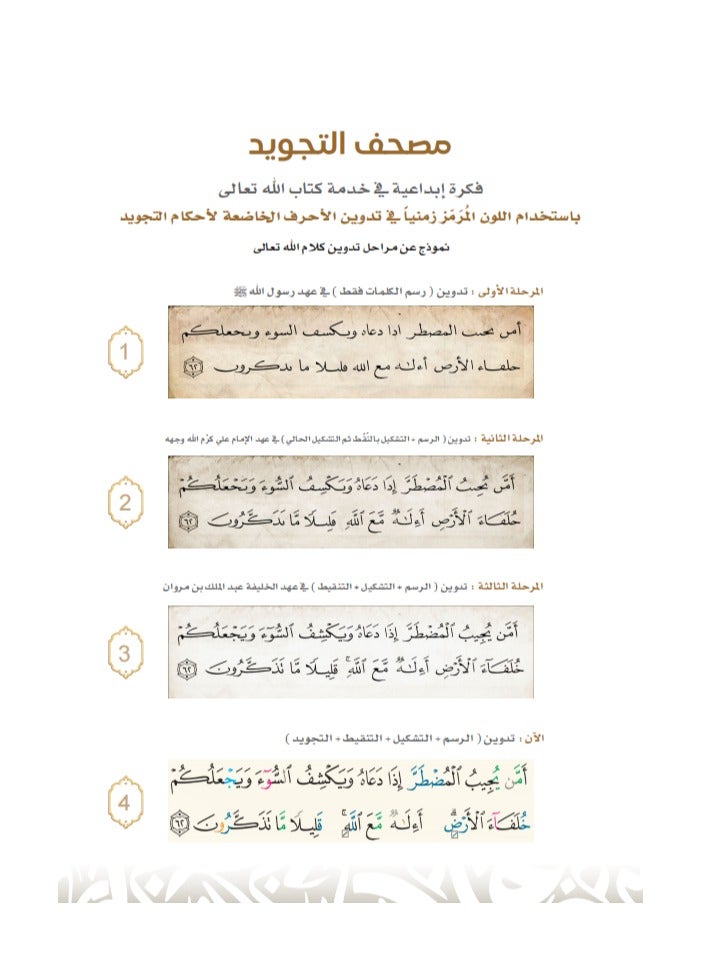 مصحف التجويد
فكرة إبداعية في خدمة كتاب الله تعالى
باستخدام اللون المُرَمَز زمنياً في تدوين الأحرف الخاضعة لأحكام التجويد
نموذج عن مراحل تدوين كلام الله تعالى
المرحلة الأولى : تدوين ( رسم الكلمات فقط ) في عهد رسول الله ﷺ
1
أمں ىحىٮ المصطر ادا دعاه وىكسف السوء وىحعلكم
حلفاء الأرص أءلـٰه مع الله فلىلا ما ىدكروں ٦٢
المرحلة الثانية : تدوين ( الرسم + التشكيل بالنُقط ثم التشكيل الحالي ) في عهد الإمام علي كرّم الله وجهه
2
أَمَّں ىُحِىٮُ الْمُصْطَرَّ إِدَا دَعَاهُ وَىَكْسِفُ السُّوءَ وَىَحْعَلُكُمْ
حُلَفَاءَ الْأَرْصِ أَءِلَـٰهٌ مَّعَ اللَّهِ فَلِىلًا مَّا ىَدَكَّرُوںَ ٦٢
المرحلة الثالثة : تدوين ( الرسم + التشكيل + التنقيط ) في عهد الخليفة عبد الملك بن مروان
3
أَمَّن يُجِيبُ الْمُضْطَرَّ إِذَا دَعَاهُ وَيَكْشِفُ السُّوٓءَ وَيَجْعَلُكُمْ
خُلَفَآءَ الْأَرْضِ أَءِلَـٰهٌ مَّعَ اللَّهِۚ قَلِيلًا مَّا تَذَكَّرُونَ ٦٢
الآن : تدوين ( الرسم + التشكيل + التنقيط + التجويد )
4
أَمَّن يُجِيبُ الْمُضْطَرَّ إِذَا دَعَاهُ وَيَكْشِفُ السُّوٓءَ وَيَجْعَلُكُمْ
خُلَفَآءَ الْأَرْضِۗ أَءِلَـٰهٌ مَّعَ اللَّهِۚ قَلِيلًا مَّا تَذَكَّرُونَ ٦٢